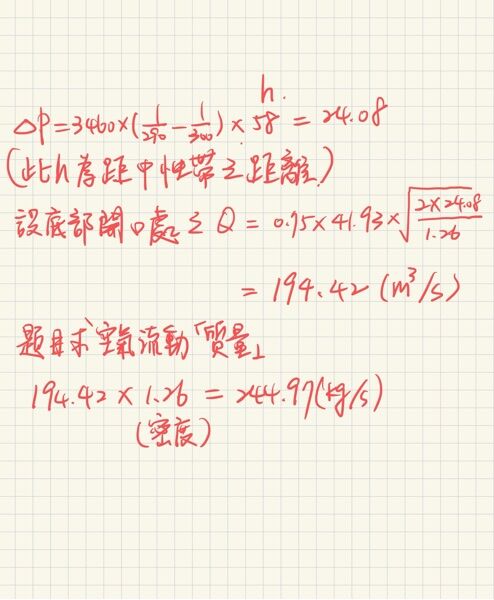 h.
△P=3460×(1/290-1/300)×58=24.08
(此h為距中性帶之距離)
設底部開口處之Q=0.75×41.93×√(2×24.08/1.26)
=194.42(m³/s)
題目求空氣流動「質量」
194.42×1.26=244.97(kg/s)
(密度)